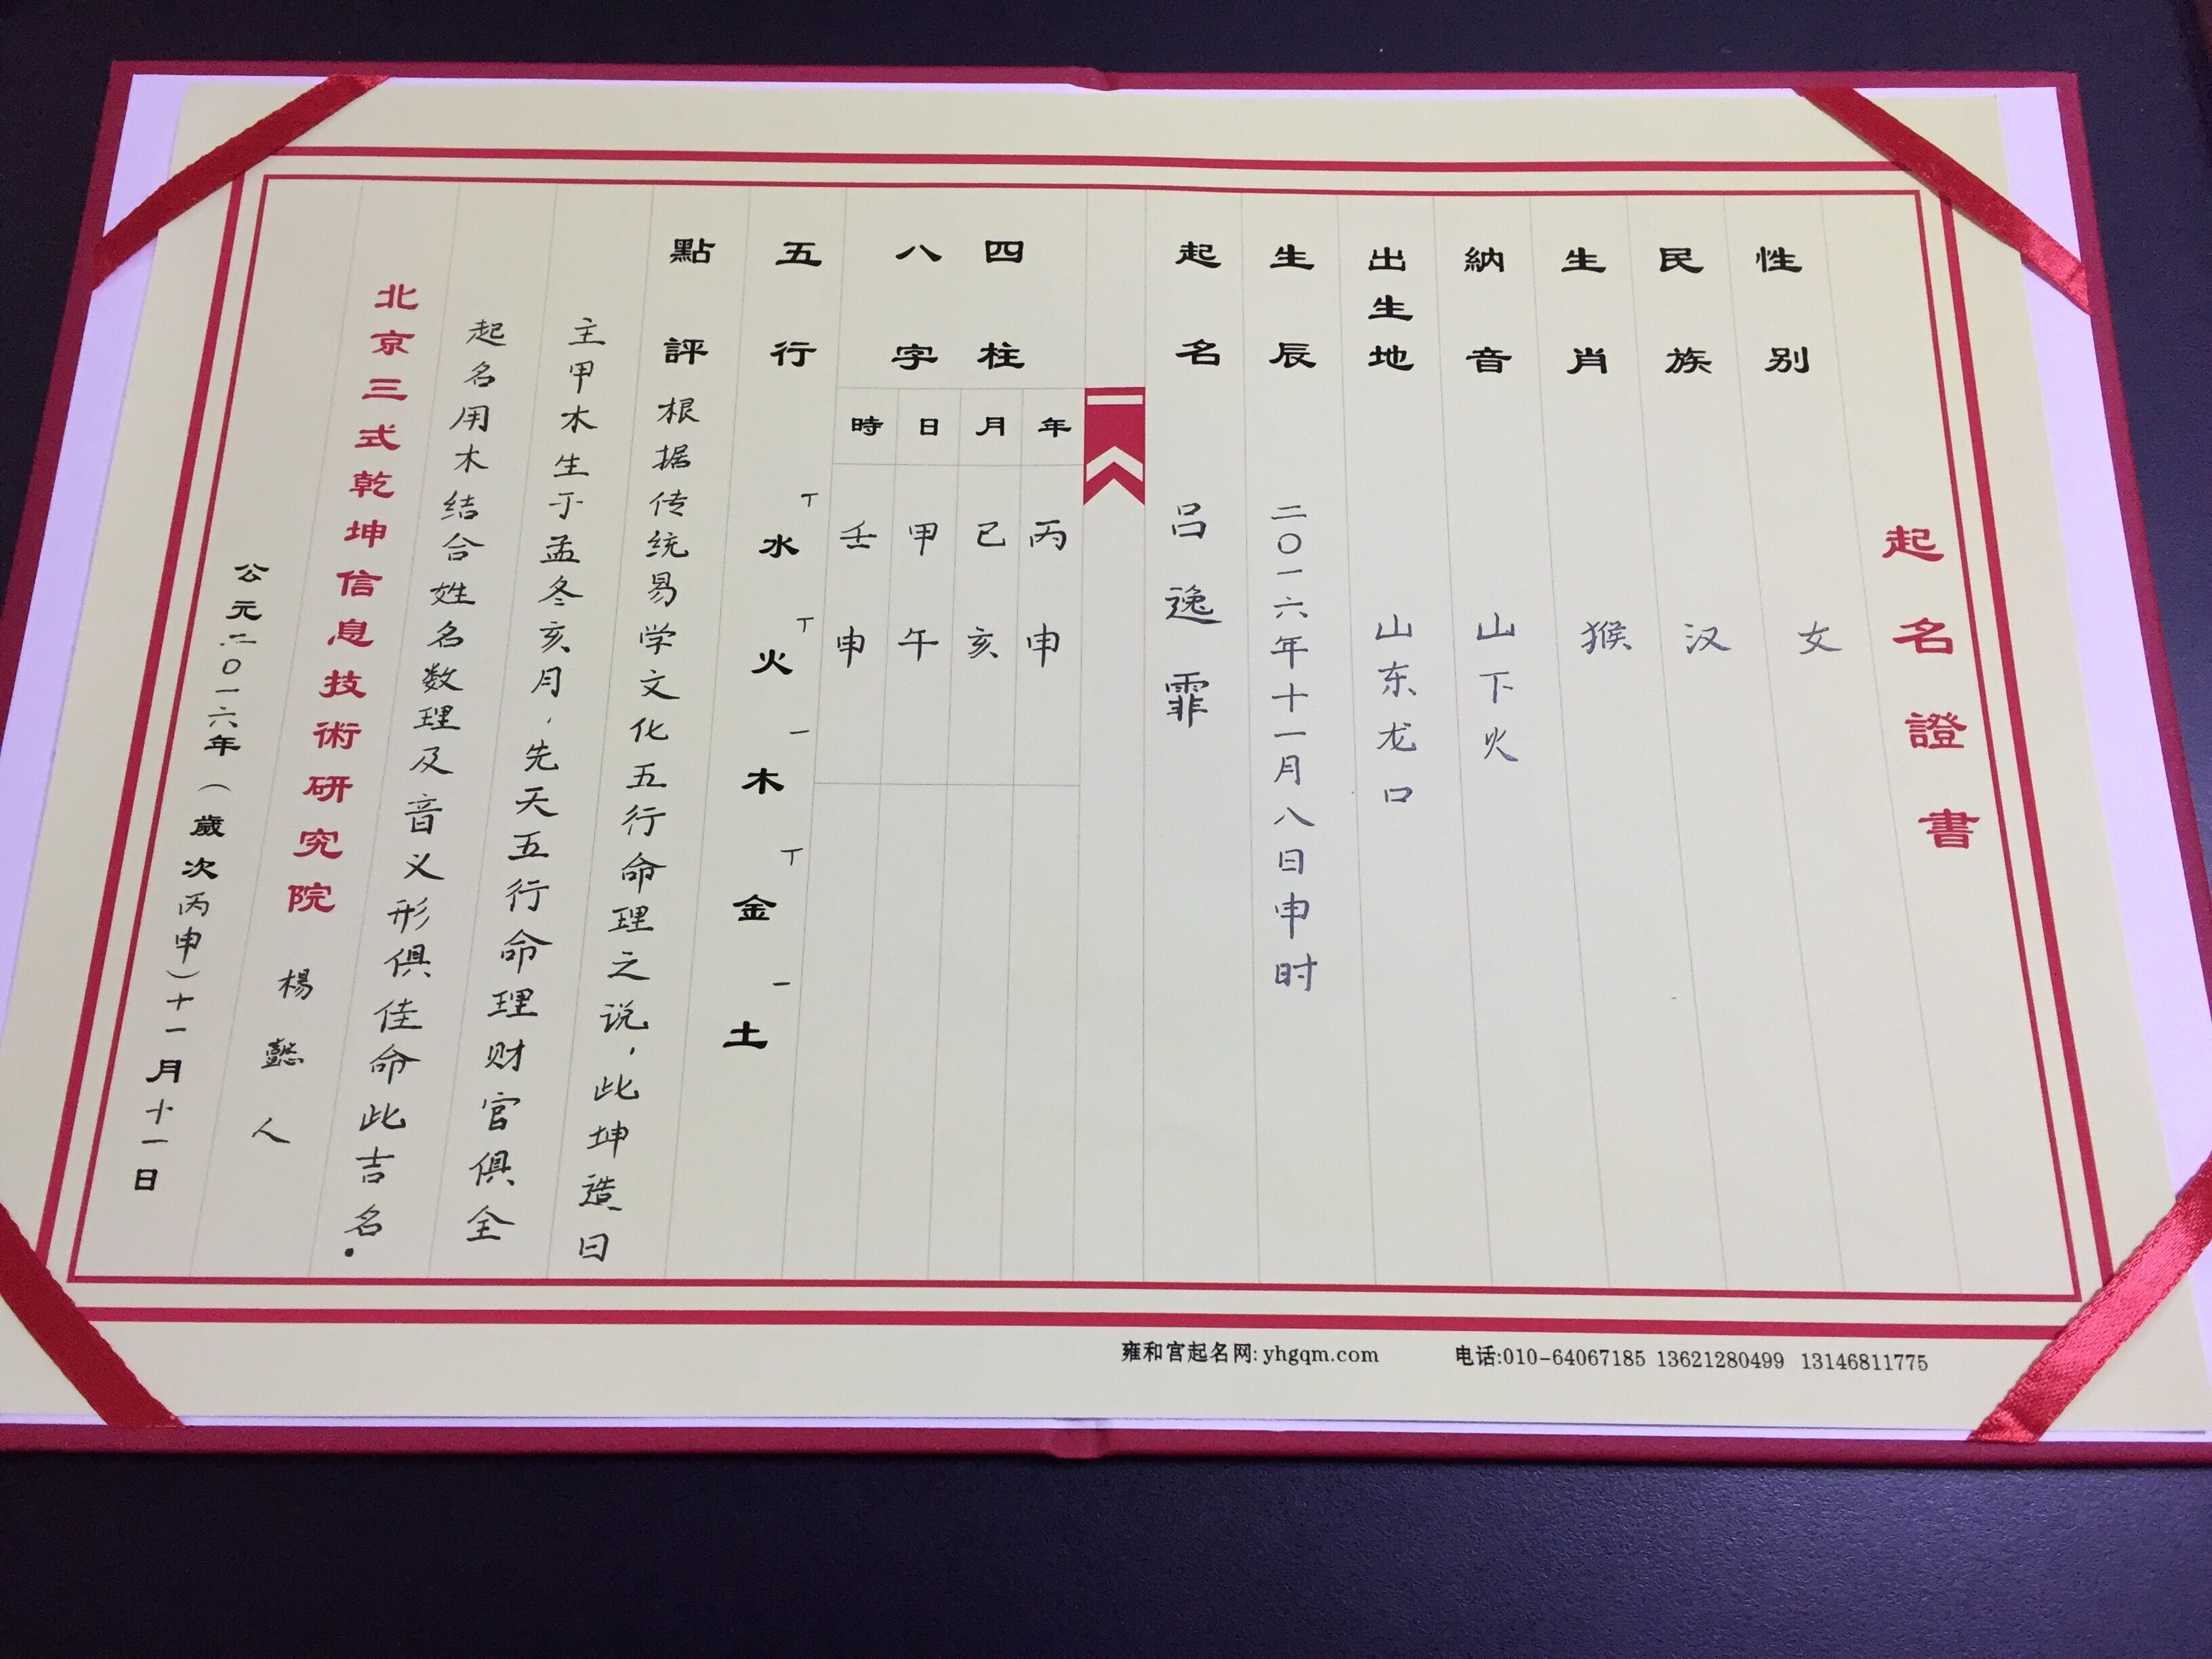 起名證書
性别 女
民族 汉
生肖 猴
納音 山下火
出生地 山东龙口
生辰 二〇一六年十一月八日申时
起名 吕逸霏
四柱八字
年 月 日 時
丙 己 甲 壬
申 亥 午 申
五行 丅水 丅火 一木 丅金 一土
點評 根据传统易学文化五行命理之说，此坤造日
主甲木生于孟冬亥月，先天五行命理财官俱全
起名用木结合姓名数理及音义形俱佳命此吉名.
北京三式乾坤信息技術研究院 楊懿人
公元二〇一六年（歲次丙申）十一月十一日
雍和宫起名网: yhgqm.com 电话:010-64067185 13621280499 13146811775